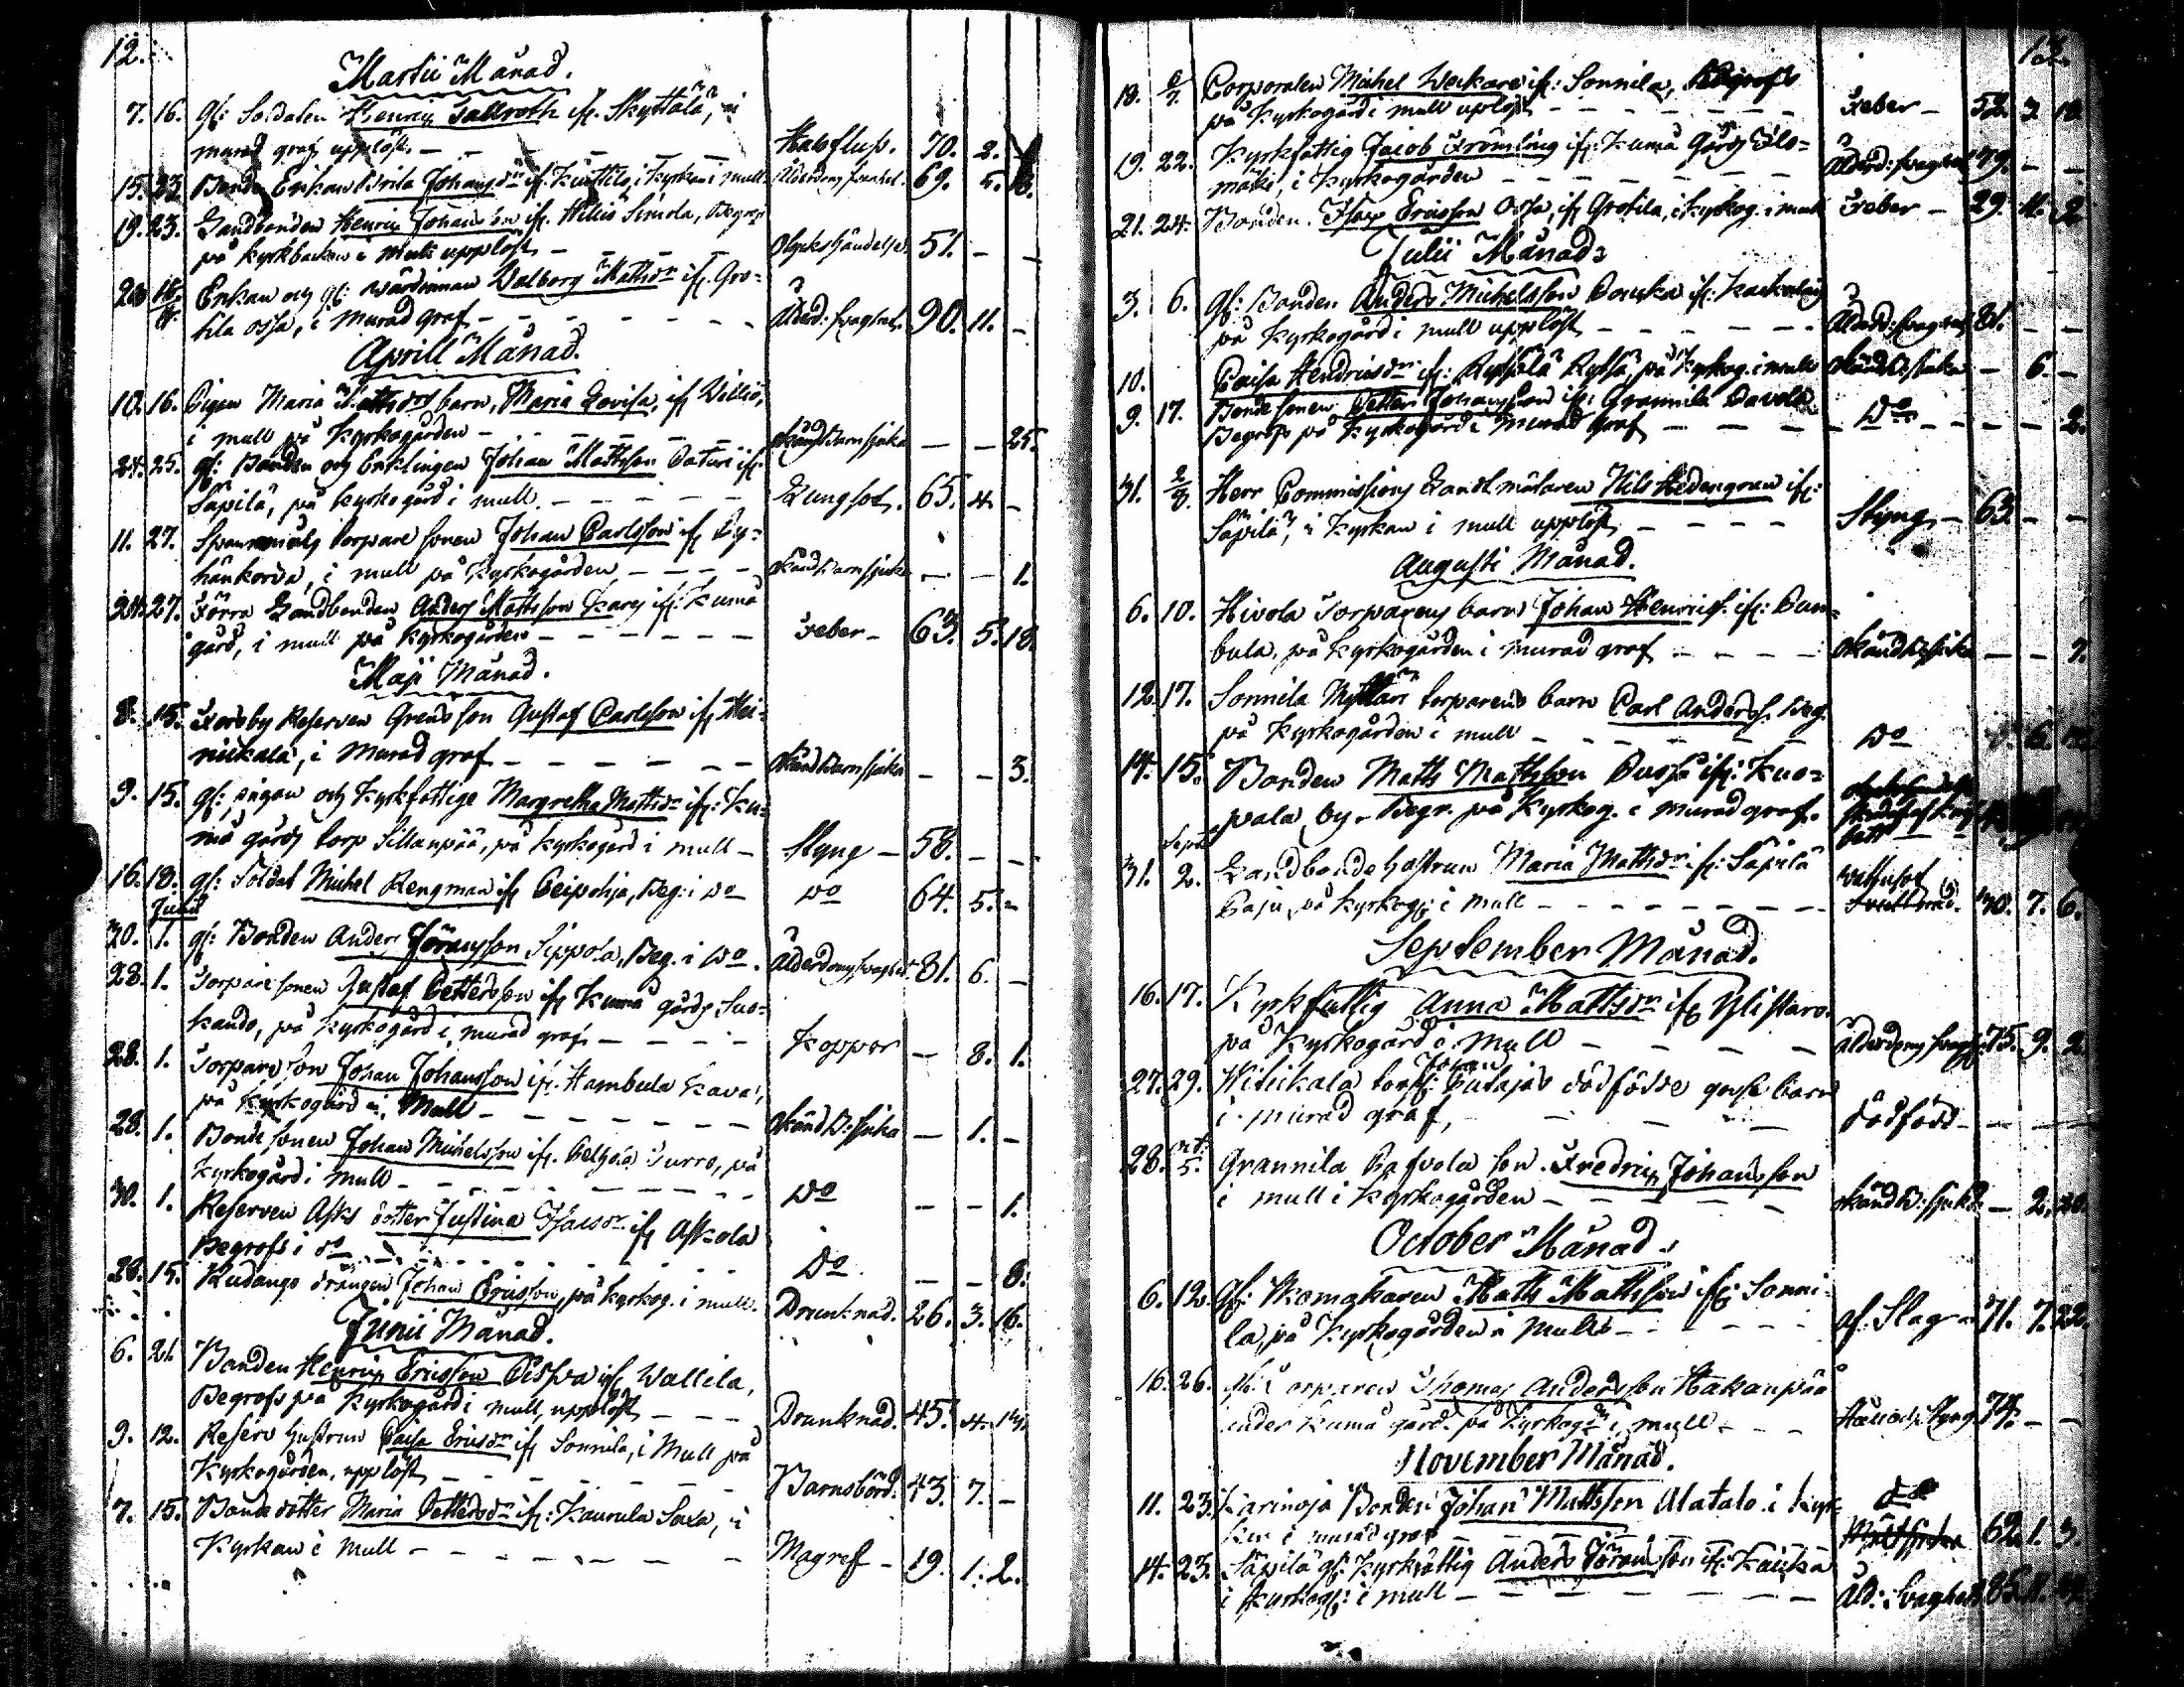 12.
Martii Månad.
7. 16. gl: Soldaten Henric Sallroth ifr. Skyttälä, i
murad graf upplöst. Halsfluss. 70. 2.
15. 23. Bonde Enkan Brita Johansdr if. Kuttila, i Kyrkan i mull Ålderdoms svaghet. 69. 5.
19. 23. Landbonden Henric Johansson ifr. Hiliö Simola, Begrofs
på kyrkbacken i mull upplöst Olyckshändelse. 51. - -
Enkan och gl: wärdinnan Walborg Mattsdr ifr. Gro-
tila ossa, i murad graf Ålderd: svaghet. 90. 11. -
Aprill Månad.
10. 16. Pigan Maria Mattsdrs barn, Maria Lovisa, ifr Williö,
i mull på Kyrkogården okänd Barnsjuka - - 25.
24. 25. gl: Bonden och Enklingen Johan Mattsson Paturi ifr.
Säpilä, på kyrkogård i mull. Lungsot. 65. 4. -
11. 27. torpare sonen Johan Carlsson ifr Py-
hänkorva, i mull på Kyrkogården okänd Barnsjuka - - 1.
24. 27. Förra Landbonden Anders Mattsson Kares ifr: Kumo
gård, i mull på Kyrkogården Feber - 63. 5. 18.
Maji Månad.
8. 15. Forsby Reserven Grens son Gustaf Carlsson ifr Hei-
niickala, i murad graf okänd Barnsjuka - - 3.
9. 15. gl: pigan och Kyrkfattige Margretha Mattsdr ifr: Ku-
mo gårds torp Sillanpää, på kyrkogård i mull - Styng - 58. - -
16. 18. gl: Soldat Michel Rengman ifr Peipohja, Beg: i do do 64. 5. -
Junii
30. 1. gl: Bonden Anders Göransson Sippola, Beg. i do. Ålderdoms svaghet. 81. 6. -
28. 1. Torpare sonen Gustaf Pettersson ifr Kumo gårds Suo-
kando, på kyrkogård i murad graf Koppor - 8. 1.
28. 1. Torpare son Johan Johansson ifr. Hambula Kava,
på kyrkogård i Mull okänd B: sjuka - 1. -
28. 1. Bonde sonen Johan Michelsson ifr. Pelhola Turro, på
kyrkogård i mull do - - 1.
30. 1. Reserven Asks dotter Justina Isacsdr ifr Askola
Begrofs i do Do - - 8.
28. 15. Kudango drängen Johan Ericsson, på kyrkog. i mull. Drunknad. 26. 3. 16.
Junii Månad.
6. 21. Bonden Henric Ericsson Pispa ifr Wallila,
Begrofs på Kyrkogård i mull, upplöst Drunknad. 45. 4. 14.
9. 12. Reserv hustrun Caisa Ericsdr ifr Sonnila, i Mull på
Kyrkogården, upplöst Barnsbörd. 43. 7. -
7. 15. Bonde dotter Maria Pettersdr ifr: Kaurula Saxa, i
Kyrkan i Mull Magref - 19. 1. 2.
13.
18. Corporalen Michel Weckare ifr: Sonnila, Begrofs
på Kyrkogård i mull uplöst Feber - 52. 3. 18.
19. 22. Kyrkfattig Jacob Frömling ifr: Kumo Gårds Ilo-
mäki, i Kyrkogården Ålderd: svaghet 79. - -
21. 24. Bonden Isac Ericsson Ossa, ifr Grotila, i kyrkog. i mull Feber - 29. 11. 2
Julii Månad
3. 6. gl: Bonden Anders Michelsson Pouka ifr:
på Kyrkogård i mull upplöst Ålderd: svaghet 81. - -
10. Caisa Hendricsdr ifr: på Kyrkog. i mull okänd B: sjuka - 6. -
9. 17. Bonde sonen Petter Johansson ifr: Grannila Pavola
Begrofs på Kyrkogård i murad graf Do - - 2.
31. 2/8. Herr Commissions Landtmätaren Nils Hedengren ifr:
Säpilä, i Kyrkan i mull upplöst Styng - 63. - -
Augusti Månad.
6. 10. Hivola Torparens barn Johan Henrics. ifr: Ham-
bula, på Kyrkogården i murad graf okänd B: sjuka - - 7.
12. 17. Sonnila Myllari torparens barn Carl Anderss. Beg.
på Kyrkogården i mull Do 6.
14. 15. Bonden Matts Mattsson Pussa ifr: Kuo-
pala by. Begr. på Kyrkog. i murad graf.
Sept:
31. 2. Landbonde hustrun Maria Mattsdr ifr: Säpilä
Paju, på kyrkog: i mull Wattusot 30. 7. 6.
September Månad.
16. 17. Kyrkfattig Anna Mattsdr ifr Ylistaro
på Kyrkogård i Mull Ålderdoms svaghet 75. 9. 2.
27. 29. Hiukala torp: Johan Putajas dödfödde gosse barn
i murad graf, dödfödd - - -
28. Oct: 5. Grannila Pafvola son Fredric Johansson
i mull i Kyrkogården okänd B: sjukd: - 2. 20.
October Månad.
6. 12. gl: Skomakaren Matts Mattsson ifr: Sonni-
la, på Kyrkogården i Mull af: Slag - 71. 7. 22.
16. 26. Torparen Thomas Andersson Hakanpää
under Kumo gård. på Kyrkog: i mull Håll och Styng 74. - -
November Månad.
11. 23. Karinoja Bonden Johan Mattsson Alatalo i Kyr-
kan i murad graf 62. 1. 3.
14. 23. Säpilä gl: Kyrkfattig Anders Göransson ifr: Kauka
i Kyrkog: i mull Åld: Svaghet 85.